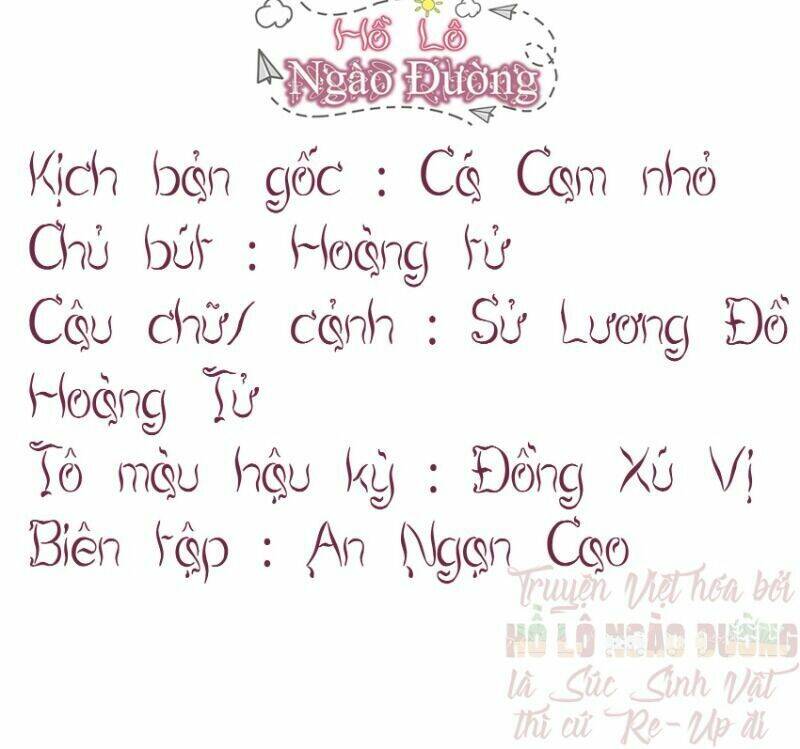 Hồ Lô
Ngào Đường
Kịch bản gốc : Cá Cam nhỏ
Chủ bút : Hoàng tử
Câu chữ/ cảnh : Sử Lương Đồ
Hoàng Tử
Tô màu hậu kỳ : Đồng Xú Vị
Biên tập : An Ngạn Cao
Truyện Việt hóa bởi
HỒ LÔ NGÀO ĐƯỜNG
là Súc Sinh Vật
thì cứ Re-Up đi